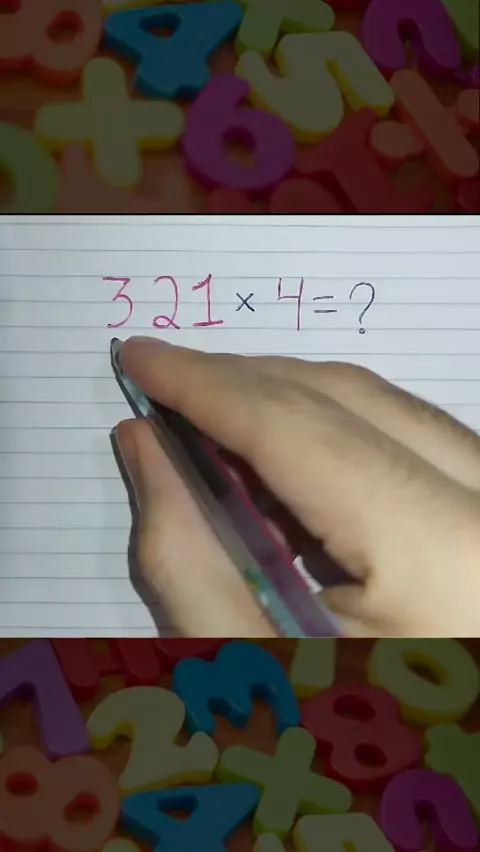 321 × 4 = ?